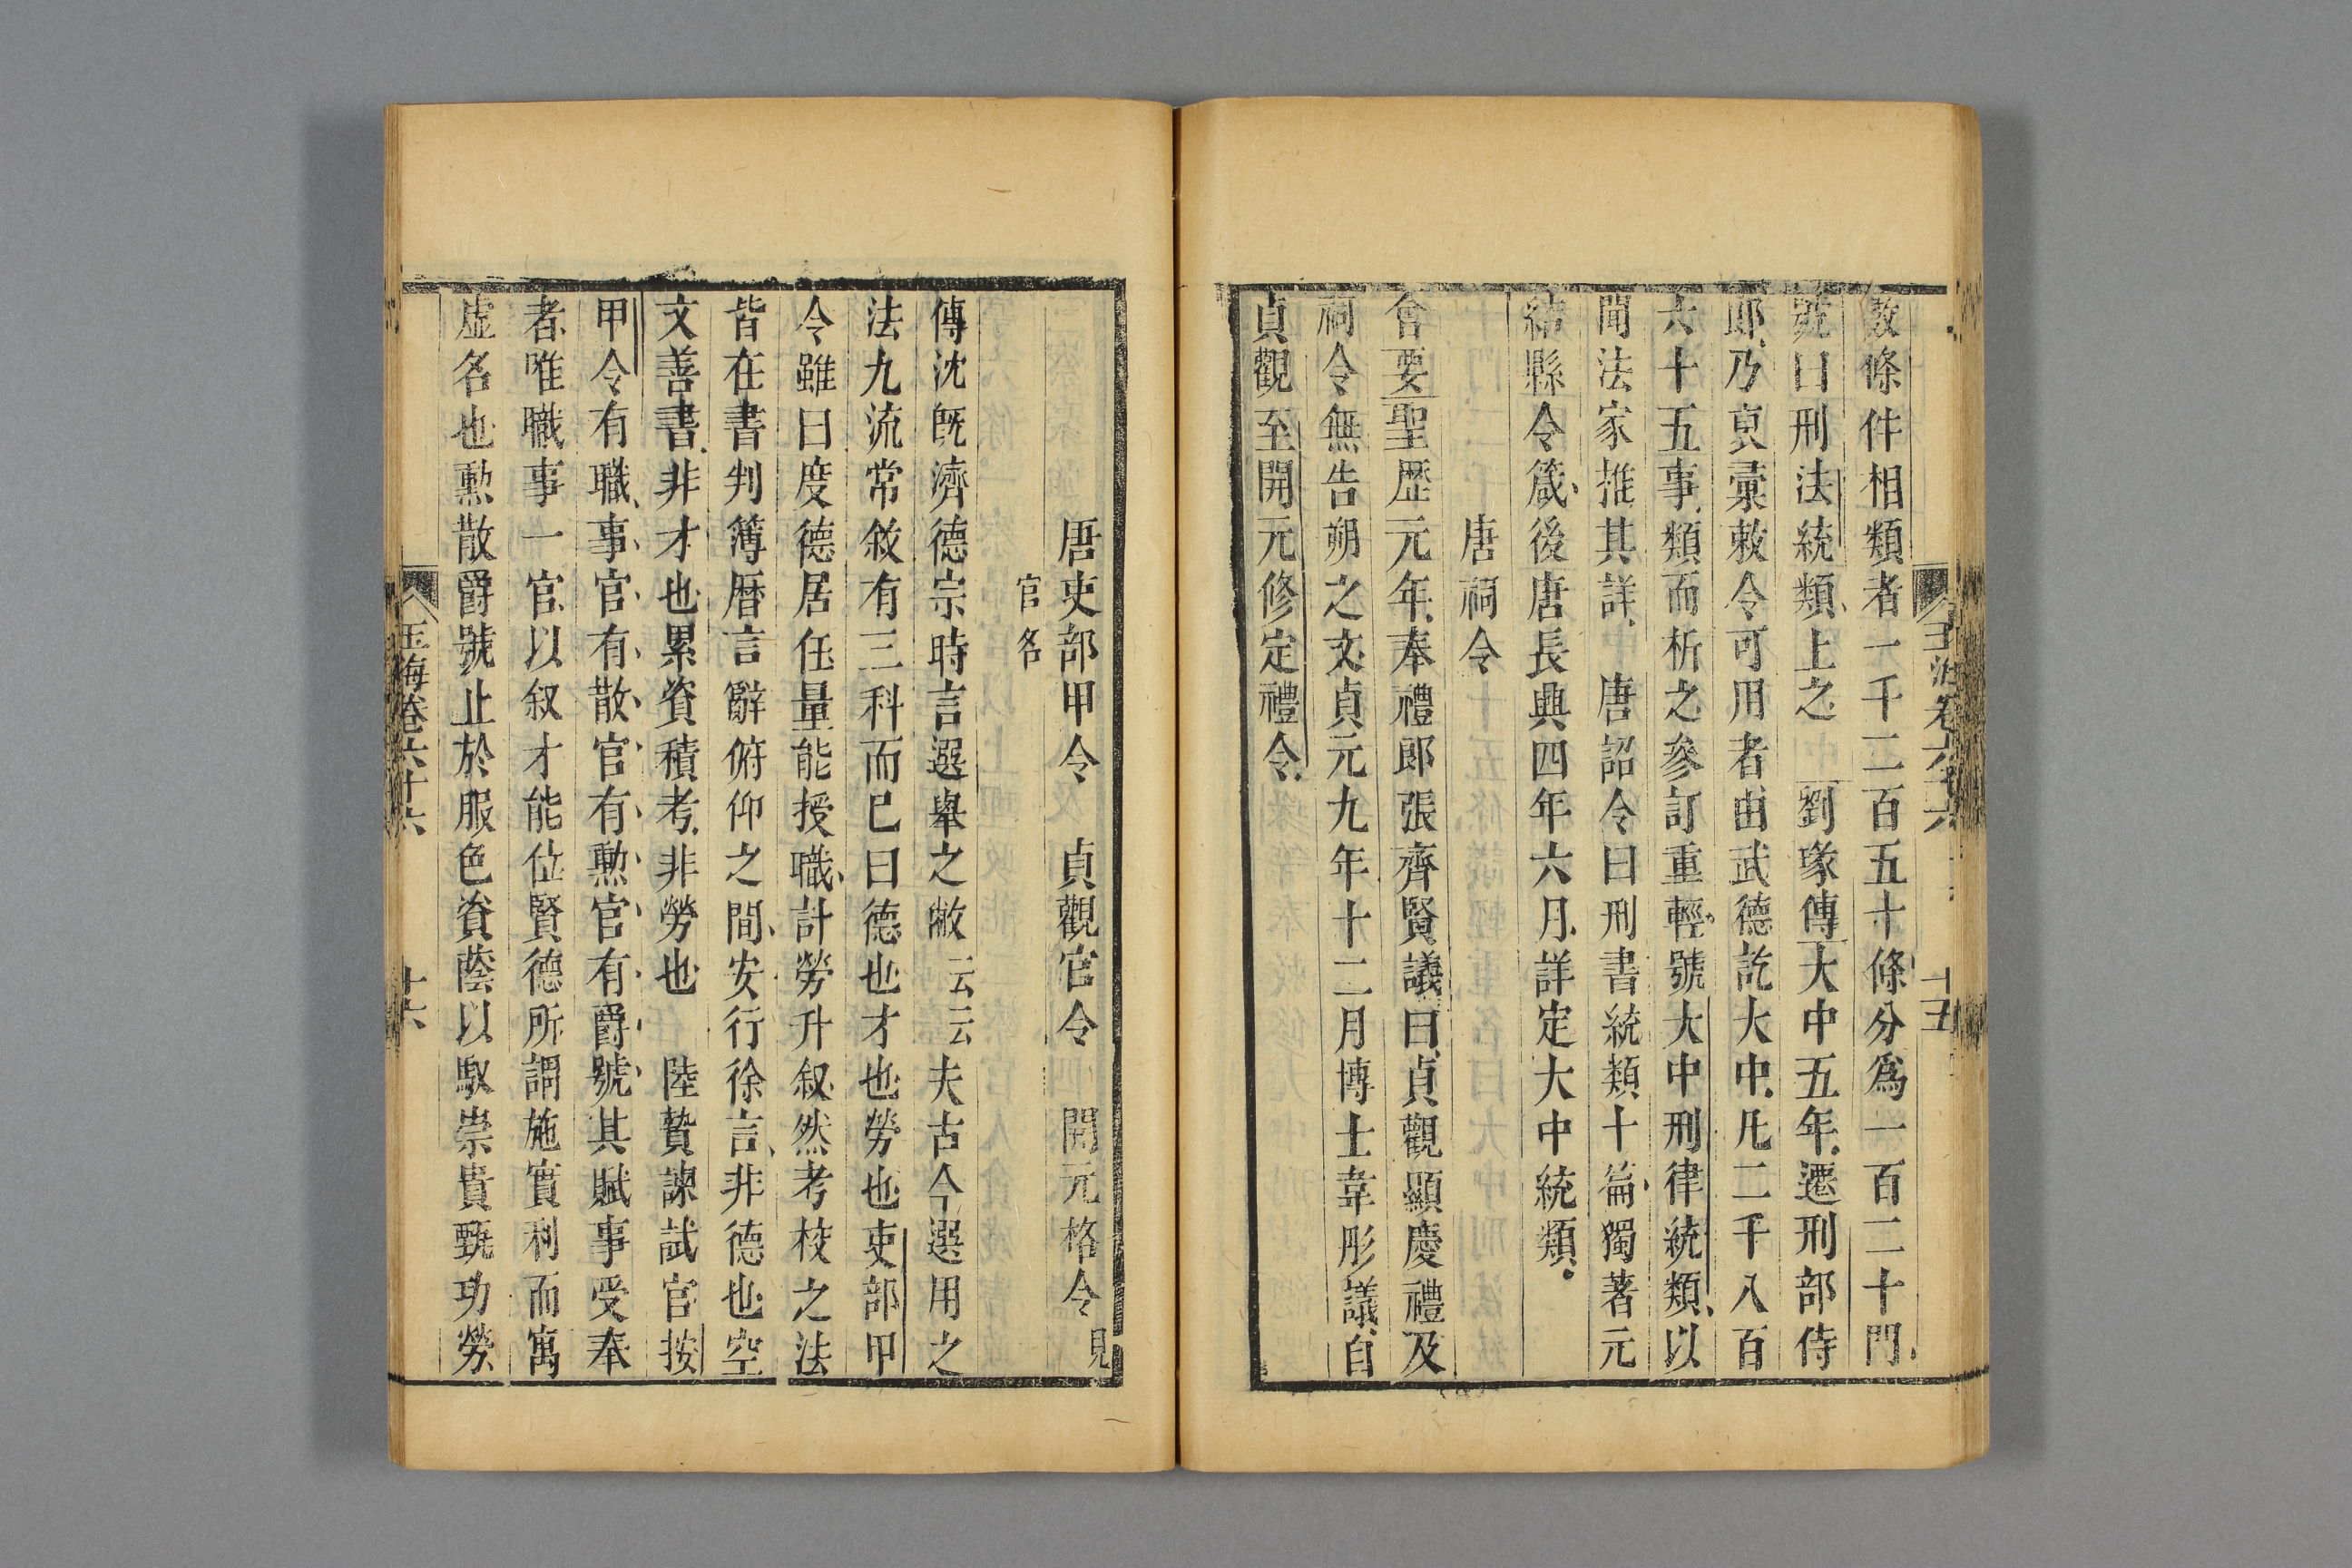 敕條件相類者一千二百五十條分爲一百二十門
號曰刑法統類上之 劉瑑傳大中五年遷刑部侍
郎乃裒彙敕令可用者由武德訖大中凡二千八百
六十五事類而析之參訂重輕號大中刑律統類以
聞法家推其詳 唐詔令曰刑書統類十篇獨著元
結縣令箴後唐長興四年六月詳定大中統類
唐祠令
會要聖歷元年奉禮郎張齊賢議曰貞觀顯慶禮及
祠令無告朔之文貞元九年十二月博士韋彤議自
貞觀至開元修定禮令
唐吏部甲令 貞觀官令 開元格令見
官名
傳沈旣濟德宗時言選舉之敝云云夫古今選用之
法九流常敘有三科而已曰德也才也勞也吏部甲
令雖曰度德居任量能授職計勞升叙然考校之法
皆在書判簿暦言辭俯仰之間安行徐言非德也空
文善書非才也累資積考非勞也 陸贄諫試官按
甲令有職事官有散官有勲官有爵號其賦事受奉
者唯職事一官以叙才能位賢德所謂施實利而寓
虚名也勲散爵號止於服色資蔭以馭崇貴甄功勞
玉海卷六十六 十六